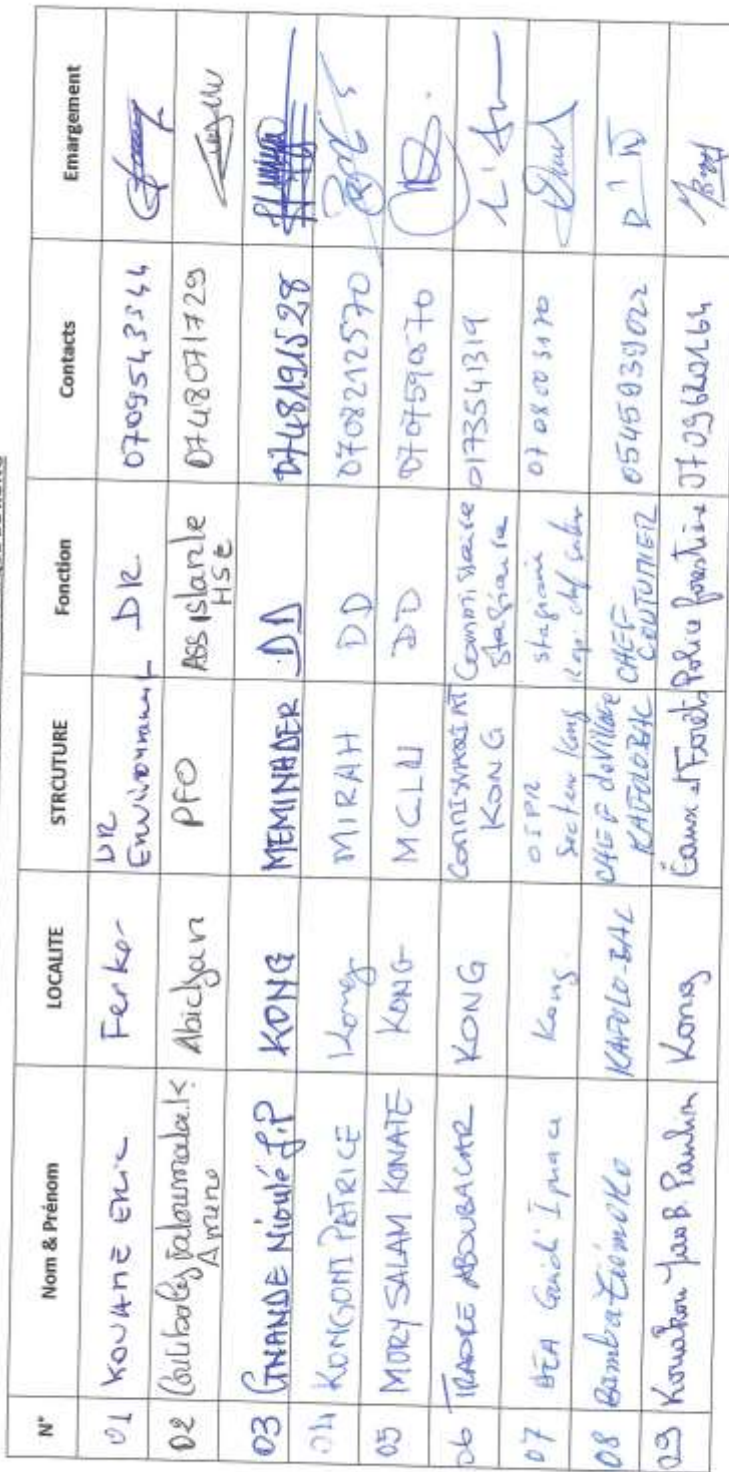 N° Nom & Prénom LOCALITE STRCUTURE Fonction Contacts Emargement
01 KOUAME ERIC Ferke DR Environnement DR 0709543544
02 Coulibaly Amino Abidjan PFO Assistante HSE 0748071729
03 GNANDE Nioulé J.P KONG MEMINADER DD 0748191528
04 KONGONI PATRICE Kong MIRAH DD 0708212570
05 MORY SALAM KONATE KONG MCLU DD 0707590870
06 TRAORE ABOUBACAR KONG COMMISSARIAT KONG Commissaire Stagiaire 0173541319
07 BEA Guidi Ignace Kong OIPR Secteur Kong stagiaire 0708003170
08 Bamba Ziémoko KAFOLO-BAC CHEF de Village KAFOLOBAC CHEF COUTUMIER 0545939022
09 Kouakou Yao B. Paulin Kong Eaux et Forêts Police forestière 0709620164